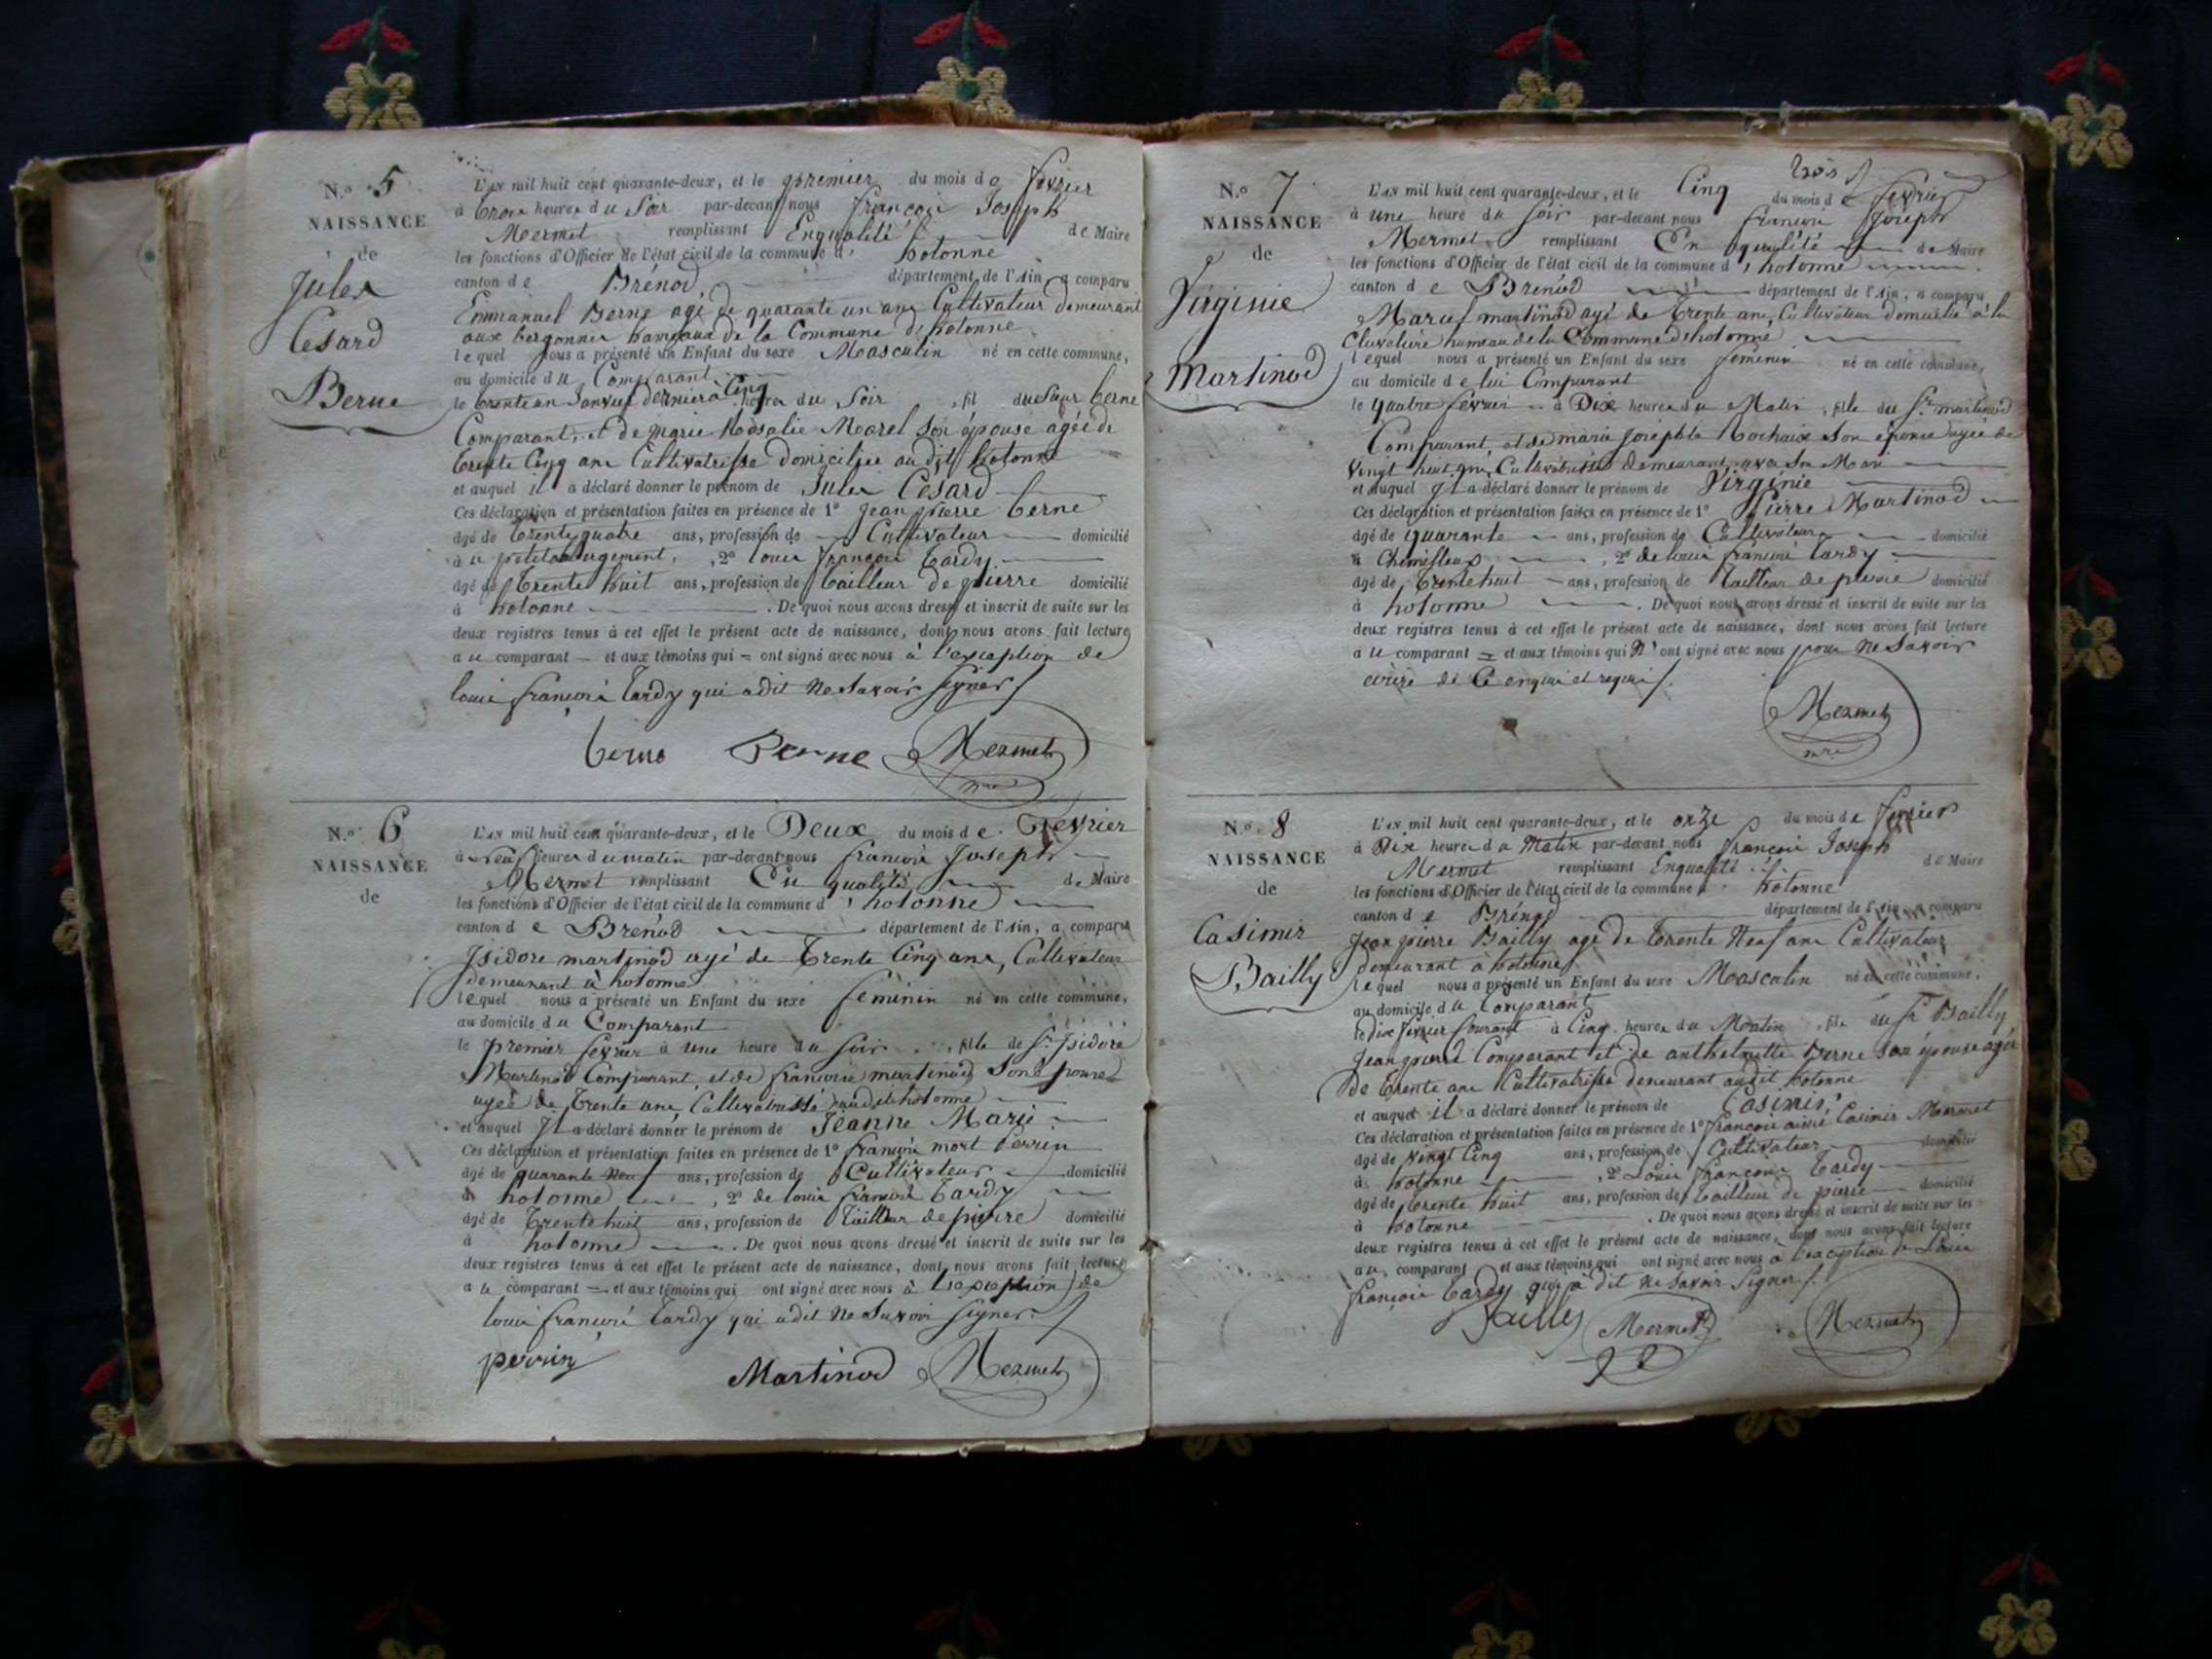 N.º 5
NAISSANCE
de
Jules
Césard
Berne
L'an mil huit cent quarante-deux, et le premier du mois de fevrier
à trois heures du Soir par-devant nous françois Joseph
Mermet remplissant En qualité de Maire
les fonctions d'Officier de l'état civil de la commune d' hotonne
canton de Brénod, département de l'Ain a comparu
Emmanuel Berne agé de quarante un ans Cultivateur demeurant
aux bergonnes hameaux de la Commune de hotonne
lequel nous a présenté un Enfant du sexe Masculin né en cette commune,
au domicile du Comparant
le trente un Janvier dernier à Cinq heures du Soir , fil du Sieur berne
Comparant, et de Marie Rosalie Morel Son épouse agée de
trente Cinq ans Cultivatrisse domiciliée audit hotonne
et auquel il a déclaré donner le prénom de Jules Césard
Ces déclaration et présentation faites en présence de 1º Jean pierre berne
âgé de trente quatre ans, profession de Cultivateur domicilié
au petit abergement, , 2º louis françois tardy
âgé de trente huit ans, profession de tailleur de pierre domicilié
à hotonne . De quoi nous avons dressé et inscrit de suite sur les
deux registres tenus à cet effet le présent acte de naissance, dont nous avons fait lecture
au comparant et aux témoins qui ont signé avec nous à l'exception de
louis françois tardy qui a dit Ne Savoir signer
berne Berne Mermet
mre
N.º 6
NAISSANCE
de
L'an mil huit cent quarante-deux, et le Deux du mois de fevrier
à Neuf heures du matin par-devant nous françois Joseph
Mermet remplissant En qualité de Maire
les fonctions d'Officier de l'état civil de la commune d' hotonne
canton de Brénod département de l'Ain, a comparu
Isidore martinod agé de Trente Cinq ans, Cultivateur
demeurant à hotonne
lequel nous a présenté un Enfant du sexe feminin né en cette commune,
au domicile du Comparant
le premier fevrier à une heure du Soir , fille de Sr Isidore
Martinod Comparant, et de françoise martinod Son épouse
agée de Trente ans, Cultivatrisse audit hotonne
et auquel Il a déclaré donner le prénom de Jeanne Marie
Ces déclaration et présentation faites en présence de 1º françois mort Perrin
âgé de quarante neuf ans, profession de Cultivateur domicilié
à hotonne , 2º de louis françois tardy
âgé de Trente huit ans, profession de Tailleur de pierre domicilié
à hotonne . De quoi nous avons dressé et inscrit de suite sur les
deux registres tenus à cet effet le présent acte de naissance, dont nous avons fait lecture
au comparant et aux témoins qui ont signé avec nous à l'exception de
louis françois tardy qui a dit Ne Savoir signer
perrin Martinod Mermet
N.º 7
NAISSANCE
de
Virginie
Martinod
L'an mil huit cent quarante-deux, et le Cinq du mois de fevrier
à une heure du soir par-devant nous françois Joseph
Mermet remplissant En qualité de Maire
les fonctions d'Officier de l'état civil de la commune d' hotonne
canton de Brénod département de l'Ain, a comparu
Marie martinod agé de trente ans, Cultivateur domicilié à la
hameau de la Commune d'hotonne
lequel nous a présenté un Enfant du sexe feminin né en cette commune,
au domicile de lui Comparant
le quatre fevrier à Dix heures du Matin , fille du Sr martinod
Comparant, et de marie Josephte Rochaix Son épouse agée de
vingt huit ans, Cultivatrisse demeurant avec Son Mari
et auquel Il a déclaré donner le prénom de Virginie
Ces déclaration et présentation faites en présence de 1º Pierre Martinod
âgé de quarante ans, profession de Cultivateur domicilié
à , 2º de louis françois tardy
âgé de trente huit ans, profession de Tailleur de pierre domicilié
à hotonne . De quoi nous avons dressé et inscrit de suite sur les
deux registres tenus à cet effet le présent acte de naissance, dont nous avons fait lecture
au comparant et aux témoins qui N'ont signé avec nous pour Ne Savoir
écrire de Ce enquis et requis
Mermet
mre
N.º 8
NAISSANCE
de
Casimir
Bailly
L'an mil huit cent quarante-deux, et le onze du mois de fevrier
à Dix heures du Matin par-devant nous françois Joseph
Mermet remplissant En qualité de Maire
les fonctions d'Officier de l'état civil de la commune d' hotonne
canton de Brénod département de l'Ain, a comparu
Jean pierre Bailly agé de trente Neuf ans Cultivateur
demeurant à hotonne
lequel nous a présenté un Enfant du sexe Masculin né en cette commune,
au domicile du Comparant
le dix fevrier Courant à Cinq heures du Matin , fils du Sr Bailly
Jean pierre Comparant et de anthelmette Berne Son épouse agée
de trente ans Cultivatrisse demeurant audit hotonne
et auquel il a déclaré donner le prénom de Casimir
Ces déclaration et présentation faites en présence de 1º françois aimé Casimir Mermet
âgé de vingt Cinq ans, profession de Cultivateur domicilié
à hotonne , 2º Louis françois tardy
âgé de trente huit ans, profession de tailleur de pierre domicilié
à hotonne . De quoi nous avons dressé et inscrit de suite sur les
deux registres tenus à cet effet le présent acte de naissance, dont nous avons fait lecture
au comparant et aux témoins qui ont signé avec nous à l'exception de Louis
françois tardy qui a dit Ne Savoir Signer
Bailly Mermet Mermet